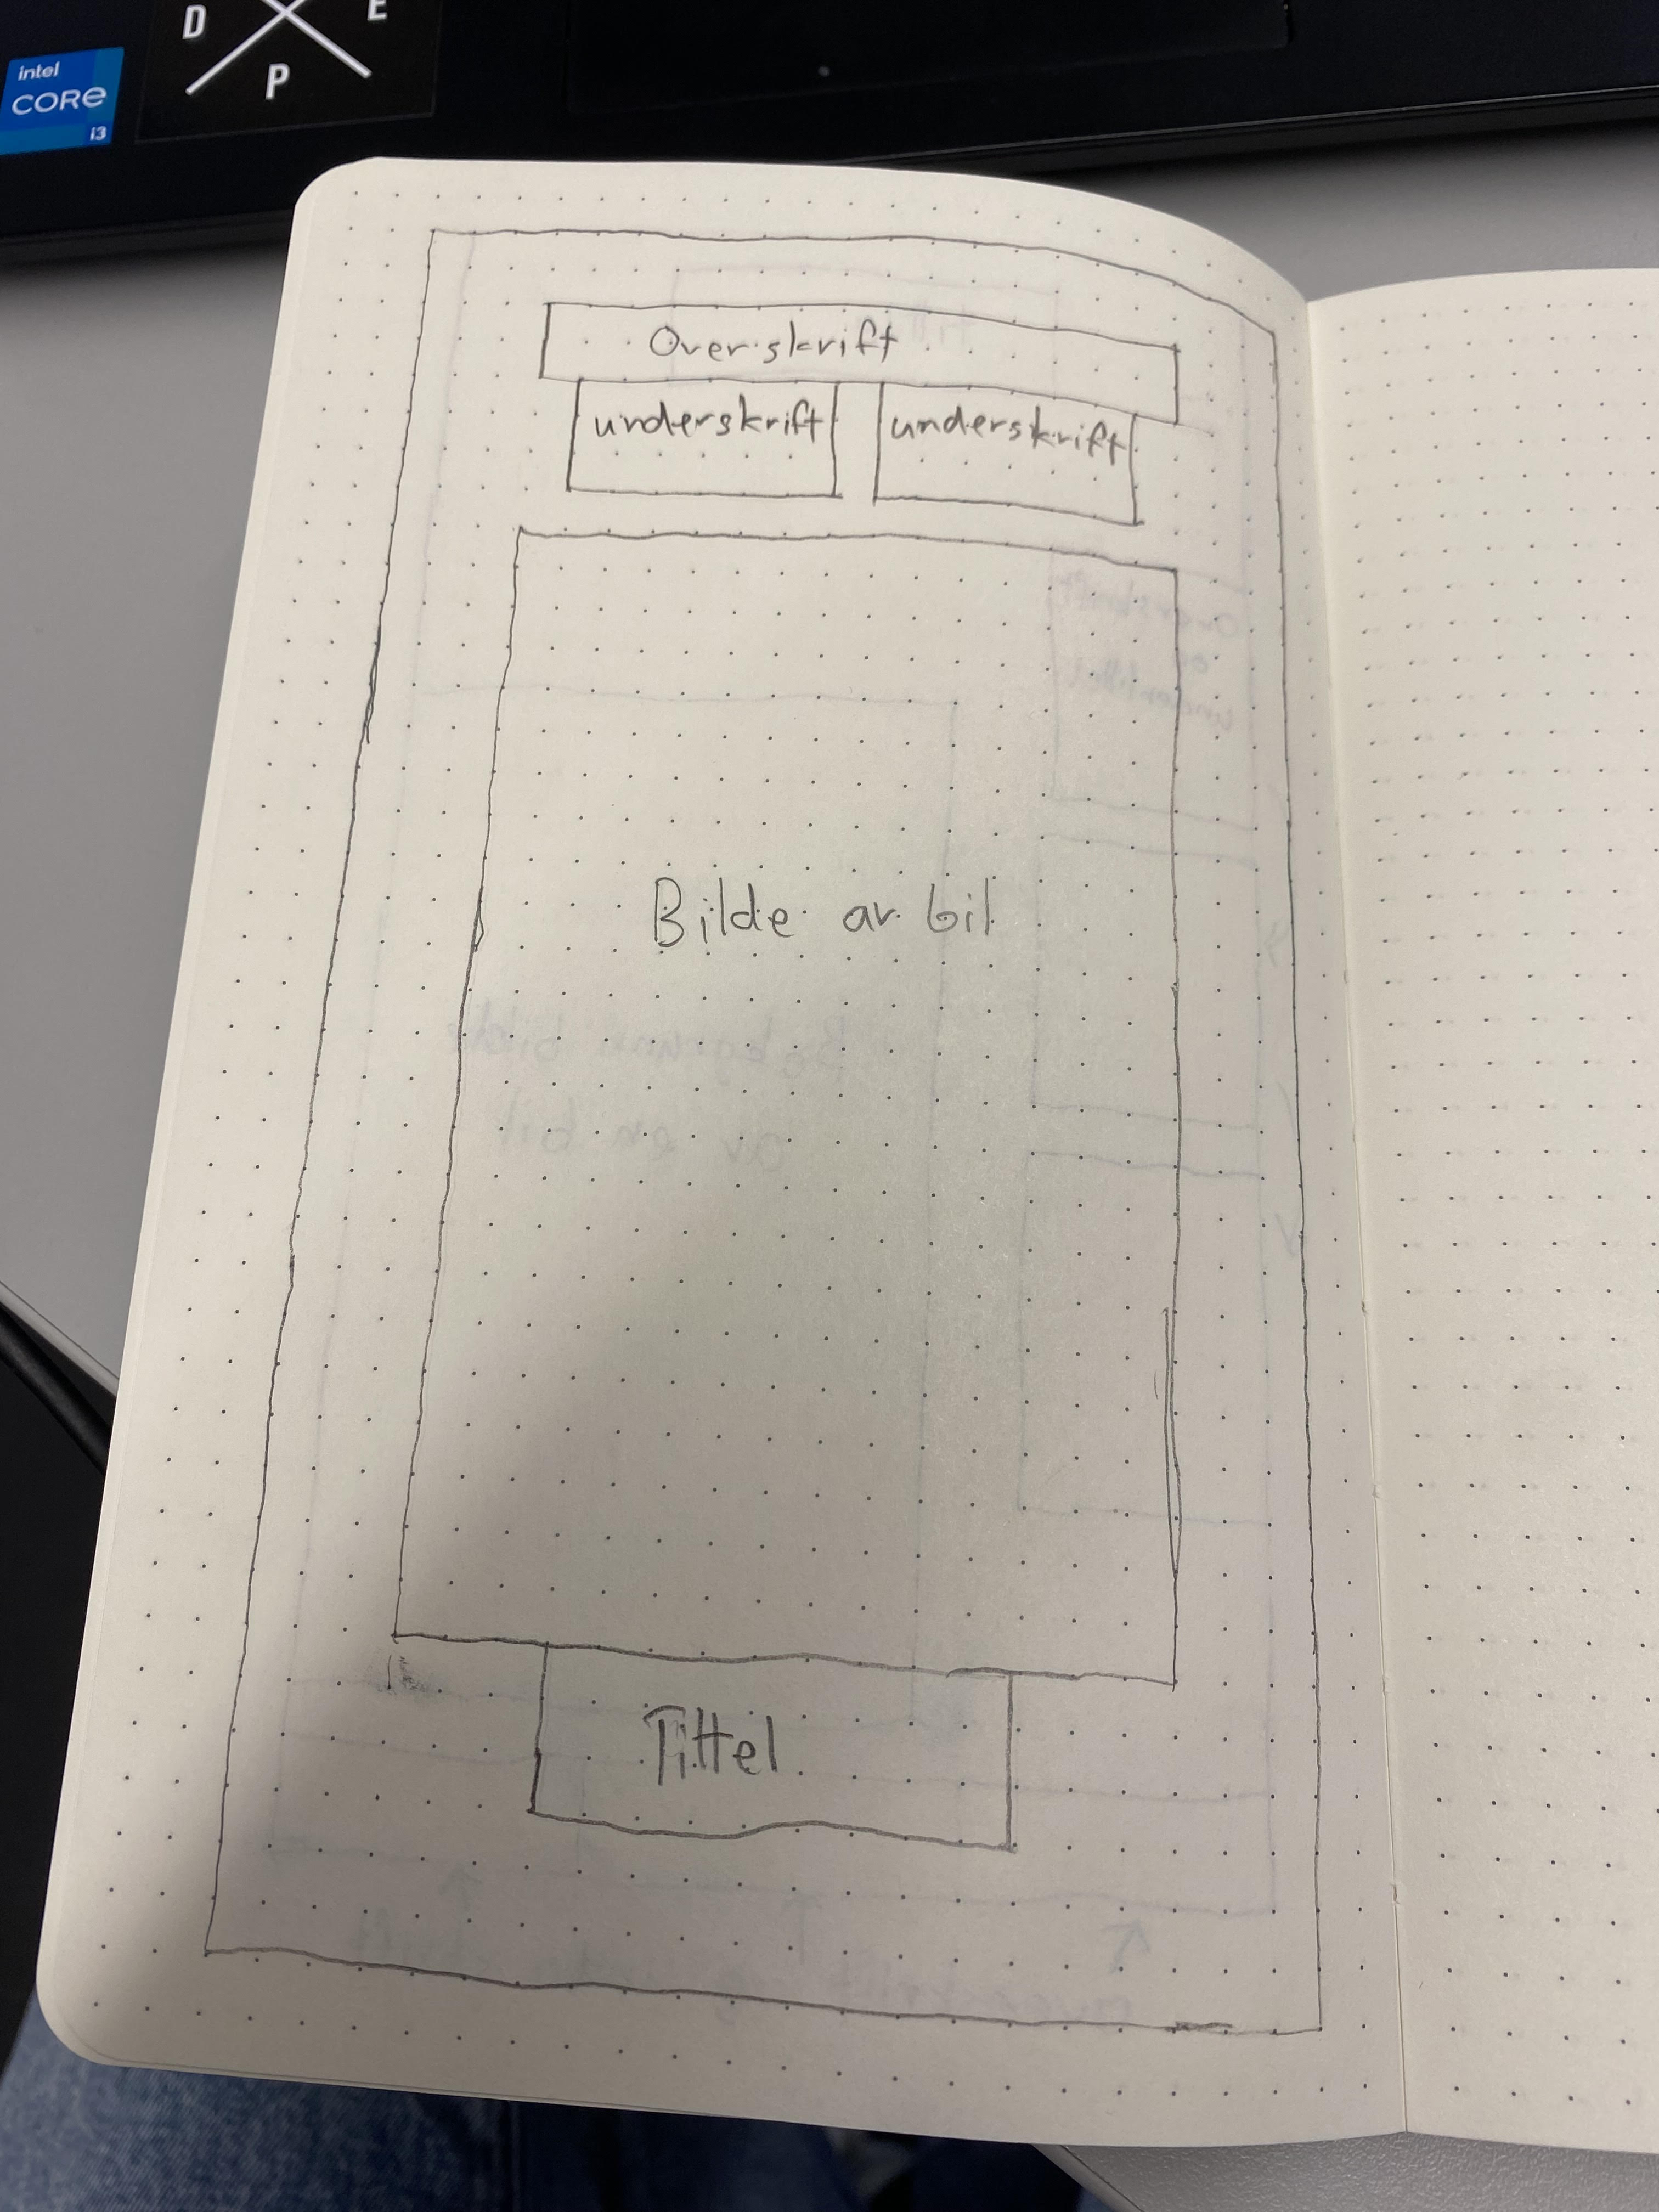 D E
P
intel
CORE
i3
Overskrift
underskrift underskrift
Bilde av bil
Tittel